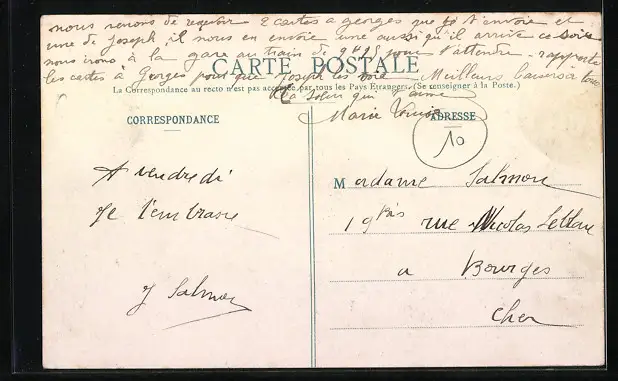 nous venons de recevoir 2 cartes a georges que je t'envoie et
une de Joseph il nous en envoie une aussi qu'il arrive ce soir
nous irons à la gare au train de 9H 15 pour t'attendre - rapporte
les cartes à Georges pour que Joseph les voie. Meilleurs baisers à tous
CARTE POSTALE
La Correspondance au recto n'est pas acceptée par tous les Pays Étrangers. (Se renseigner à la Poste.)
Ta soeur qui t'aime
Marie Louise
CORRESPONDANCE
ADRESSE
10
A vendredi
Je t'embrasse
J Salmon
Madame Salmon
19 bis rue Nicolas Leblanc
a Bourges
Cher